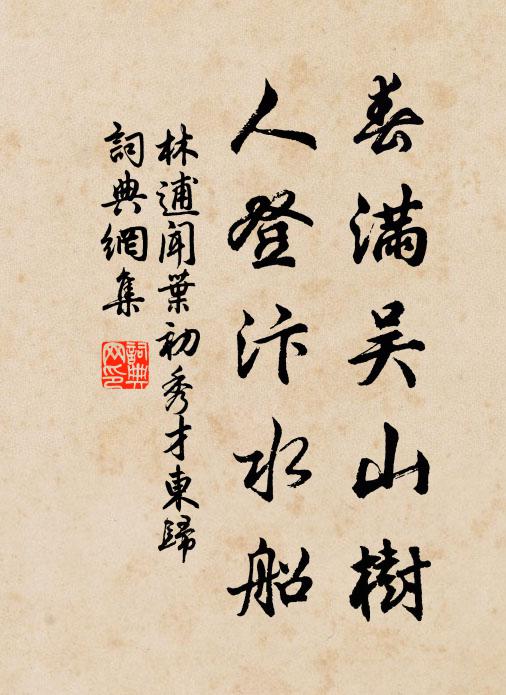 春滿吳山樹
人登汴水船
林逋聞葉初秀才東歸
詞典網集
詞典網印